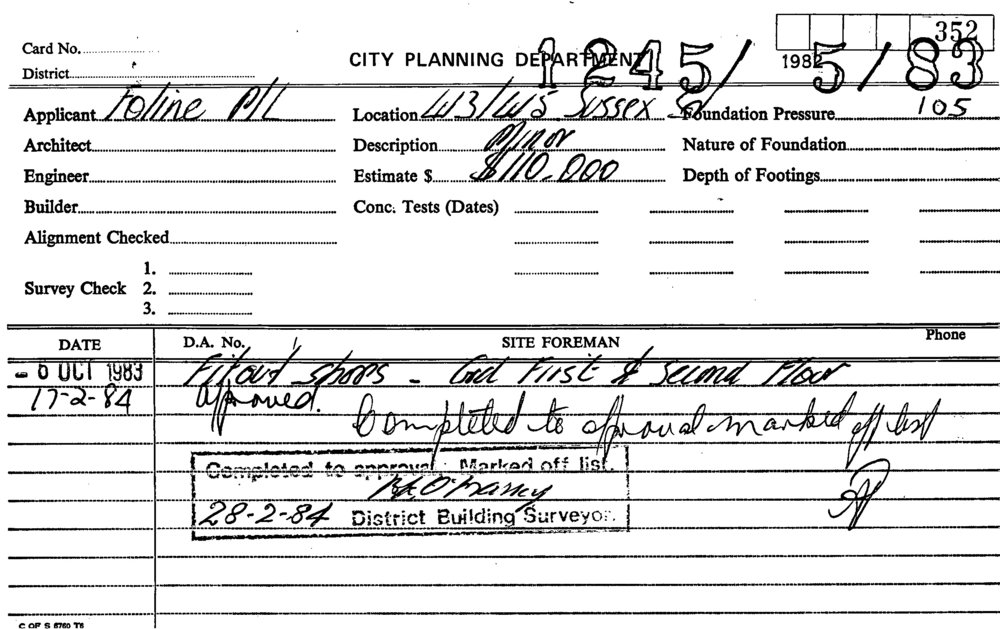 352
Card No.
CITY PLANNING DEPARTMENT
1982
1245/5/83
District
Applicant Foline P/L Location 413/415 Sussex St Foundation Pressure 105
Architect Description Minor Nature of Foundation
Engineer Estimate $ $110.000 Depth of Footings
Builder Conc. Tests (Dates)
Alignment Checked
1.
Survey Check 2.
3.
DATE D.A. No. SITE FOREMAN Phone
- 6 OCT 1983 Fitout shops - Gnd First & Second Floor
17-2-84 Approved.
Completed to approval marked off list
Completed to approval. Marked off list.
28-2-84 District Building Surveyor.
C OF S 5760 T6